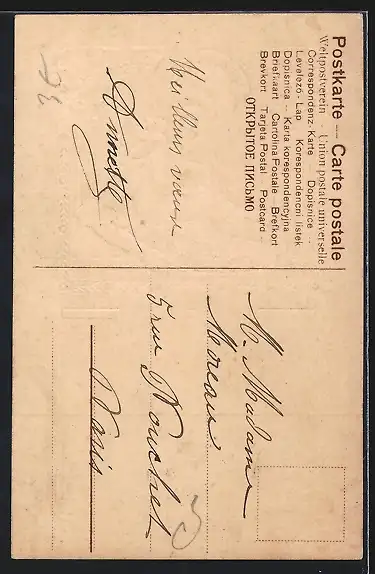 Postkarte — Carte postale
Weltpostverein — Union postale universelle
Correspondenz-Karte — Dopisnice
Levelező-Lap Korespondenční lístek
Dopisnica — Karta korespondencyjna
Briefkaart Cartolina Postale — Brefkort
Brevkort Tarjeta Postal Postcard
ОТКРЫТОЕ ПИСЬМО
Meilleurs vœux
M. Madame
Moreau
5 rue Pouchet
Paris